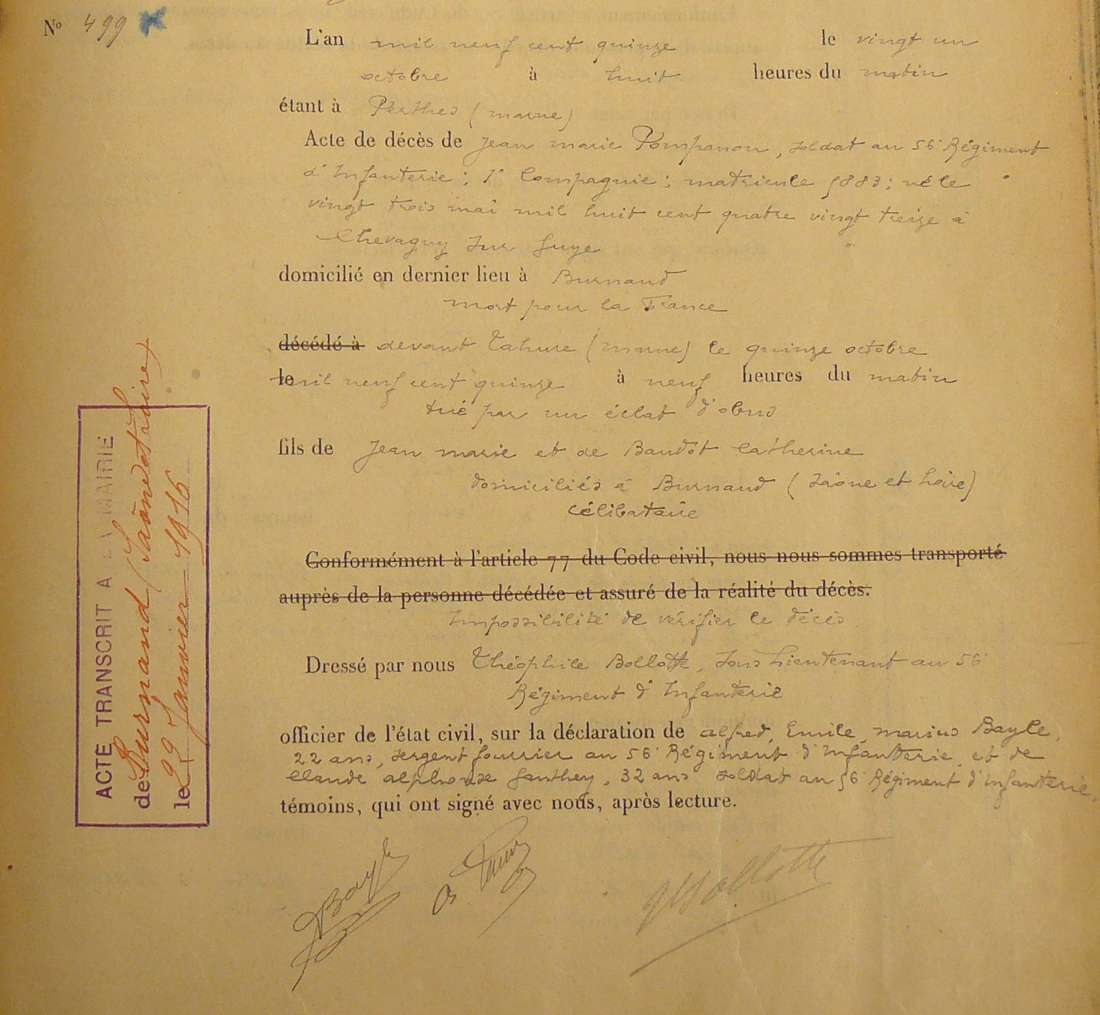 N° 499
L'an mil neuf cent quinze le vingt un
octobre à huit heures du matin
étant à Perthes (marne)
Acte de décès de Jean marie Pompanon, soldat au 56e Régiment
d'Infanterie ; 1e Compagnie ; matricule 5883 ; né le
vingt trois mai mil huit cent quatre vingt treize à
Chevagny sur Guye
domicilié en dernier lieu à Burnand
mort pour la France
décédé à devant Tahure (marne) le quinze octobre
le mil neuf cent quinze à neuf heures du matin
tué par un éclat d'obus
fils de Jean marie et de Baudot Catherine
domiciliés à Burnand (Saône et Loire)
célibataire
Conformément à l'article 77 du Code civil, nous nous sommes transporté
auprès de la personne décédée et assuré de la réalité du décès.
Impossibilité de vérifier le décès
Dressé par nous Théophile Bollotte, Sous Lieutenant au 56e
Régiment d'Infanterie
officier de l'état civil, sur la déclaration de alfred, Emile, marius Bayle,
22 ans, sergent fourrier au 56e Régiment d'Infanterie, et de
Claude alphonse 32 ans soldat au 56e Régiment d'Infanterie,
témoins, qui ont signé avec nous, après lecture.
Bayle
Bollotte
ACTE TRANSCRIT A LA MAIRIE
de Burnand (Saône et Loire)
le 29 Janvier 1916